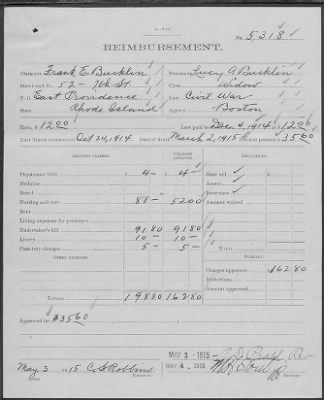 No. 5318
REIMBURSEMENT.
Claimant Frank E. Bucklin Pensioner Lucy A Bucklin
Street and No. 52 - 7th St. Class Widow
P. O. East Providence Law Civil War
State Rhode Island Agency Boston
Rate, $ 12.00 Last paid to Dec 4, 1914 $ 12.00
Last illness commenced Oct 24, 1914 Date of death March 2, 1915 Accrued pension $ 35.60
Physicians' bills 4 - 4 - State aid
Medicine
Board Insurance
Nursing and care 88 - 52 00
Rent
Living expenses for pensioner
Undertaker's bill 91 80 91 80
Livery 10 - 10 -
Cemetery charges 5 - 5 -
OTHER EXPENSES
Charges approved $162.80
TOTALS 198 80 162.80
Approved for $35.60
May 3 15 C. S. Robbins
MAY 3 - 1915
MAY 4 - 1915